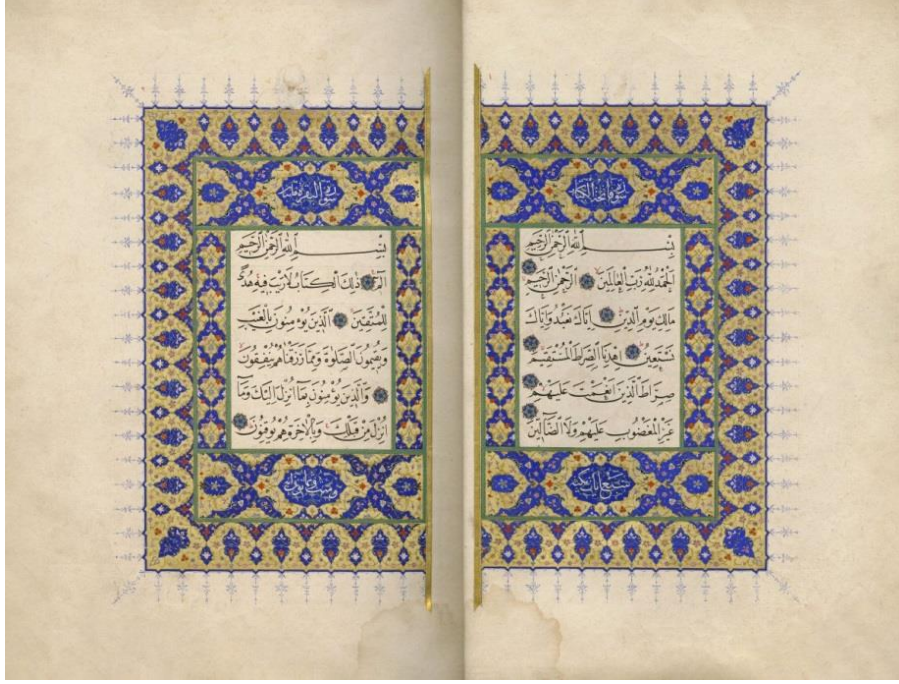 سورة فاتحة الكتاب
بسم الله الرحمن الرحيم
الحمد لله رب العالمين الرحمن الرحيم
مالك يوم الدين اياك نعبد واياك
نستعين اهدنا الصراط المستقيم
صراط الذين انعمت عليهم
غير المغضوب عليهم ولا الضالين
سبع آيات
سورة البقرة
بسم الله الرحمن الرحيم
الم ذلك الكتاب لا ريب فيه هدى
للمتقين الذين يؤمنون بالغيب
ويقيمون الصلوة ومما رزقناهم ينفقون
والذين يؤمنون بما انزل اليك وما
انزل من قبلك وبالاخرة هم يوقنون